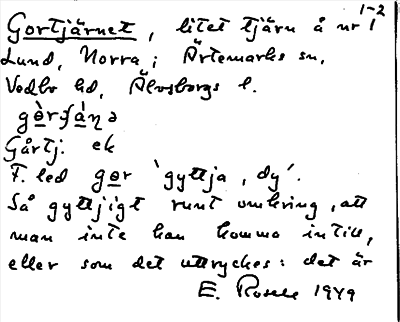 1-2
Gortjärnet, litet tjärn å nr 1
Lund, Norra; Ärtemarks sn,
Vedbo hd, Älvsborgs l.
Gårtj. ek
F. led gor 'gyttja, dy'.
Så gyttjigt runt omkring, att
man inte kan komma intill,
eller som det uttryckes: det är
E. Rosell 1949